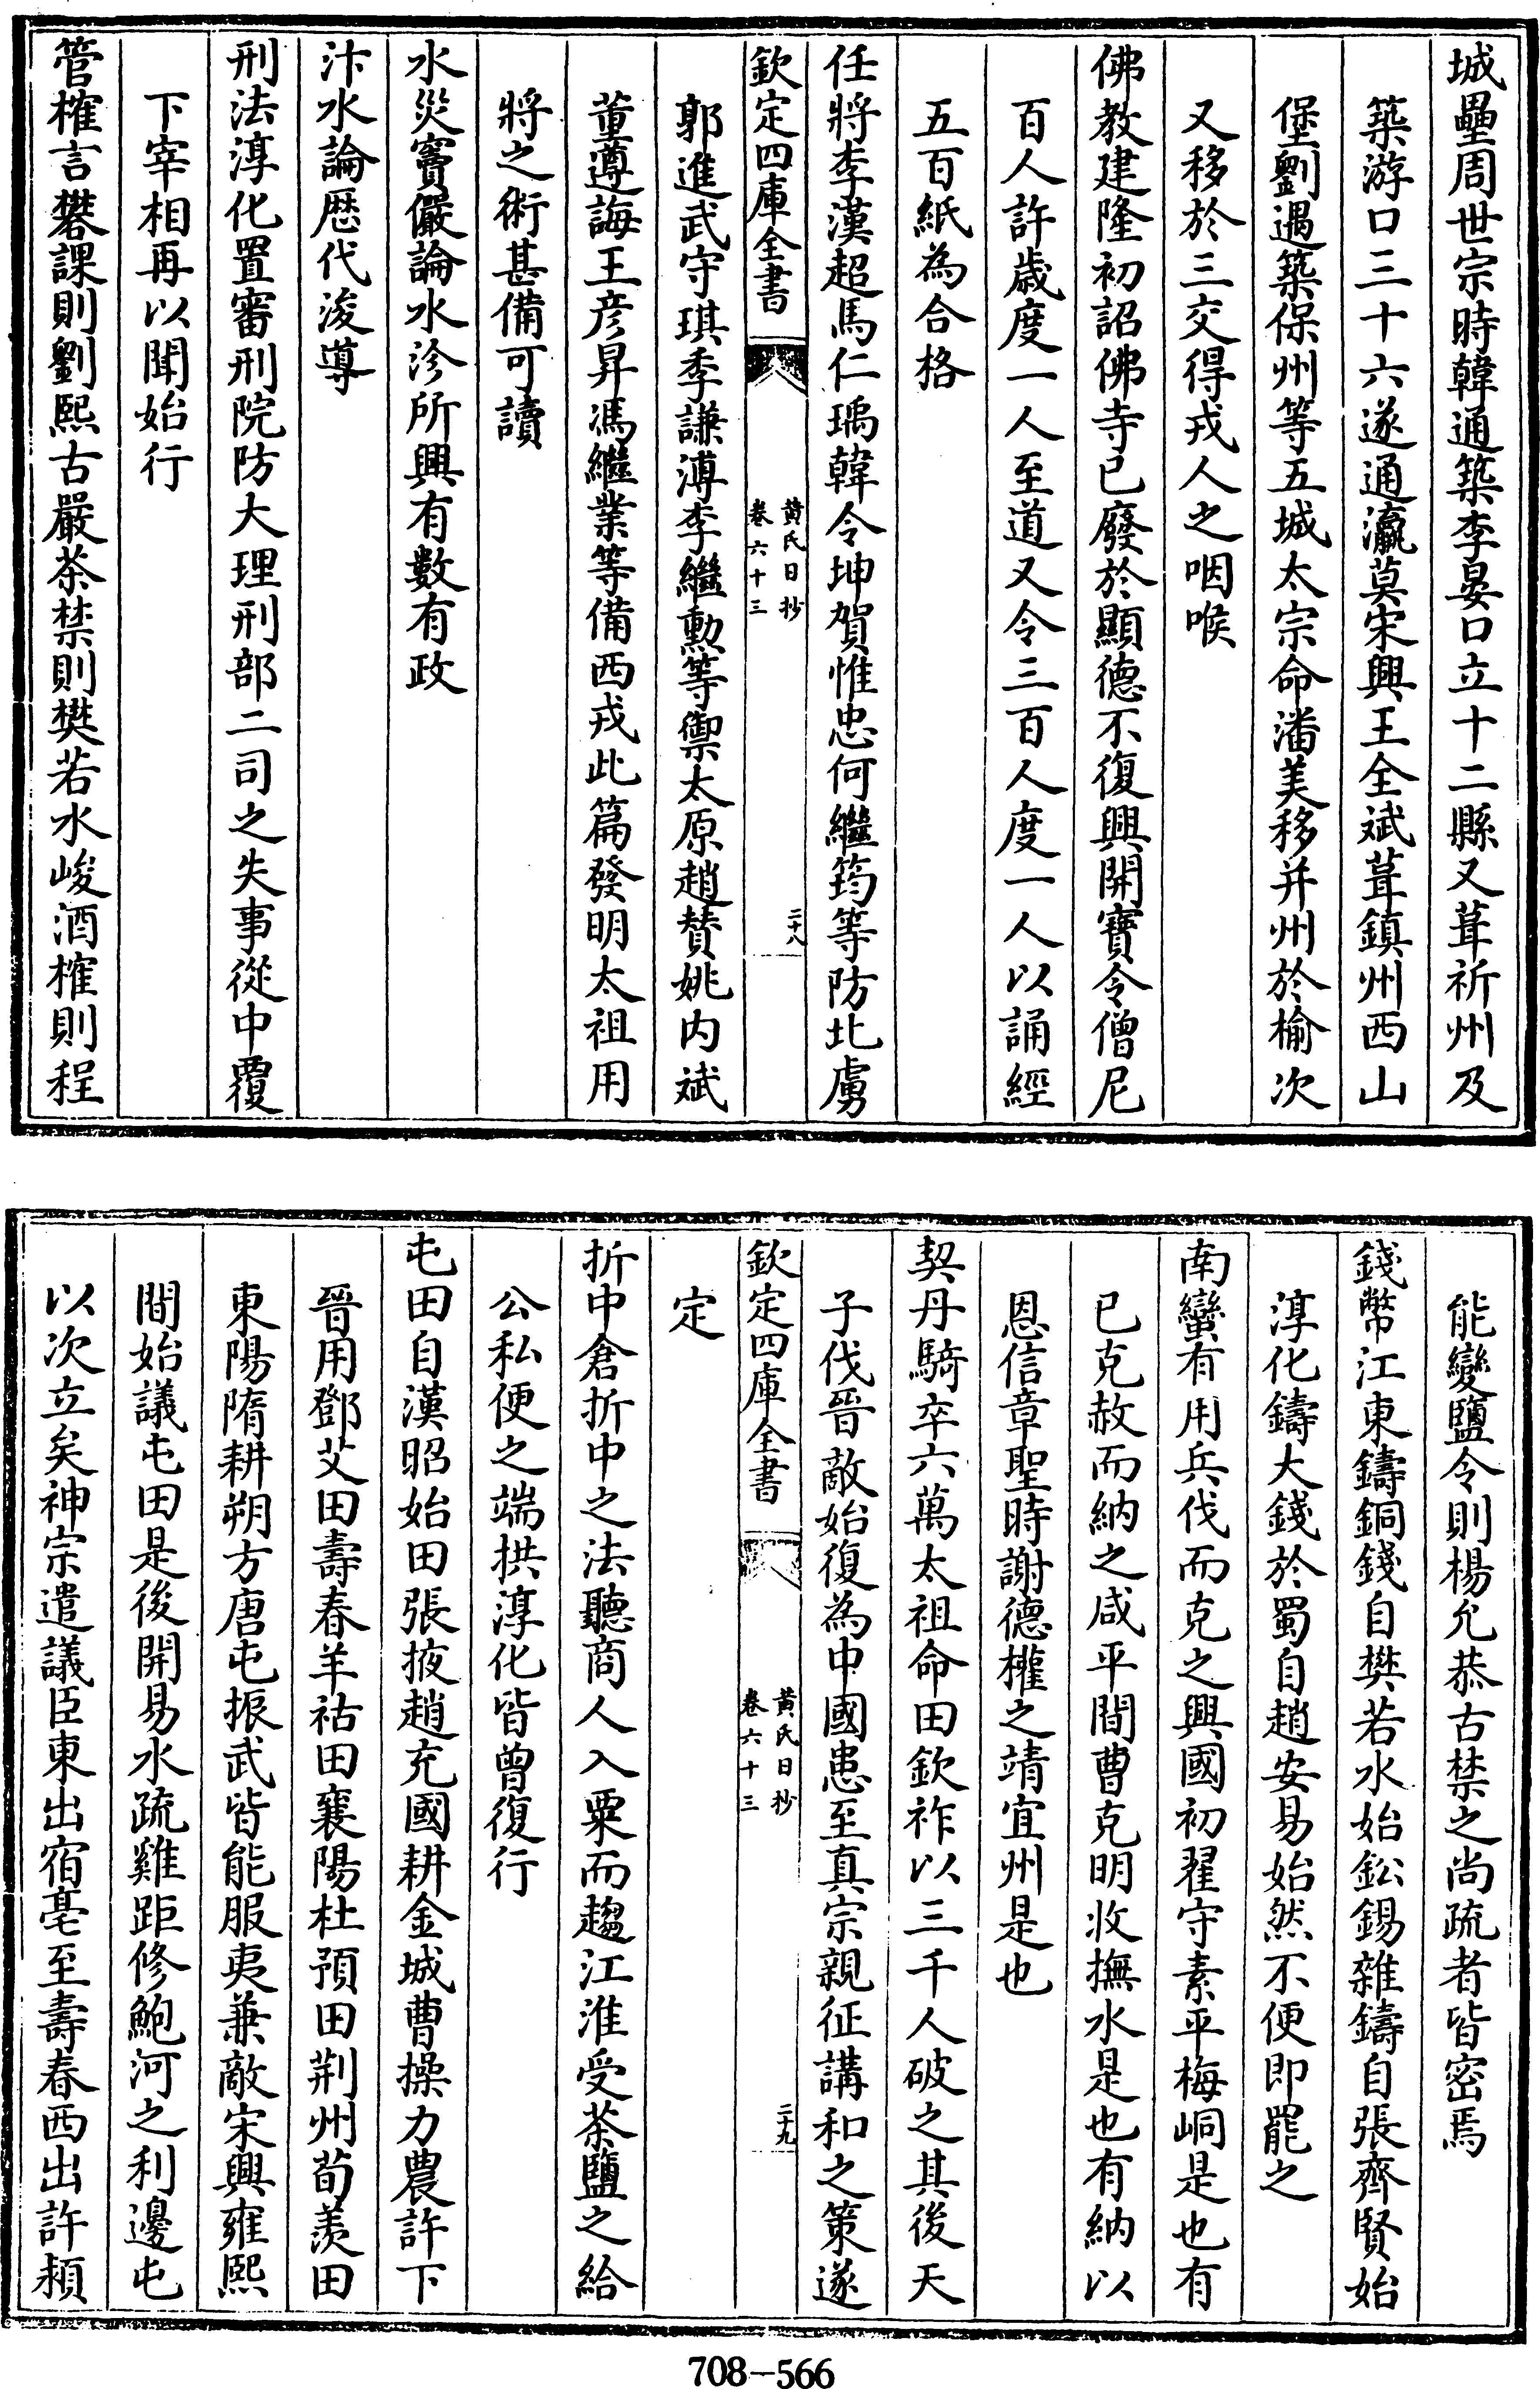 城壘周世宗時韓通築李晏口立十二縣又葺祈州及
築游口三十六遂通瀛莫宋興王全斌葺鎮州西山
堡劉遇築保州等五城太宗命潘美移并州於榆次
又移於三交得戎人之咽喉
佛教建隆初詔佛寺已廢於顯德不復興開寶令僧尼
百人許歲度一人至道又令三百人度一人以誦經
五百紙為合格
任將李漢超馬仁瑀韓令坤賀惟忠何繼筠等防北虜
欽定四庫全書
黃氏日抄
卷六十三
二十八
郭進武守琪李謙溥李繼勳等禦太原趙贊姚内斌
董遵誨王彥昇馮繼業等備西戎此篇發明太祖用
將之術甚備可讀
水災竇儼論水沴所興有數有政
汴水論歷代浚導
刑法淳化置審刑院防大理刑部二司之失事從中覆
下宰相再以聞始行
管榷言礬課則劉熙古嚴茶禁則樊若水峻酒榷則程
能變鹽令則楊允恭古禁之尚疏者皆密焉
錢幣江東鑄銅錢自樊若水始鈆錫雜鑄自張齊賢始
淳化鑄大錢於蜀自趙安易始然不便即罷之
南蠻有用兵伐而克之興國初翟守素平梅峒是也有
已克赦而納之咸平間曹克明收撫水是也有納以
恩信章聖時謝德權之靖宜州是也
契丹騎卒六萬太祖命田欽祚以三千人破之其後天
子伐晉敵始復為中國患至真宗親征講和之策遂
欽定四庫全書
黃氏日抄
卷六十三
二十九
定
折中倉折中之法聽商人入粟而趨江淮受茶鹽之給
公私便之端拱淳化皆曾復行
屯田自漢昭始田張掖趙充國耕金城曹操力農許下
晉用鄧艾田壽春羊祜田襄陽杜預田荆州荀羨田
東陽隋耕朔方唐屯振武皆能服夷兼敵宋興雍熙
間始議屯田是後開易水疏雞距修鮑河之利邊屯
以次立矣神宗遣議臣東出宿亳至壽春西出許潁
708-566